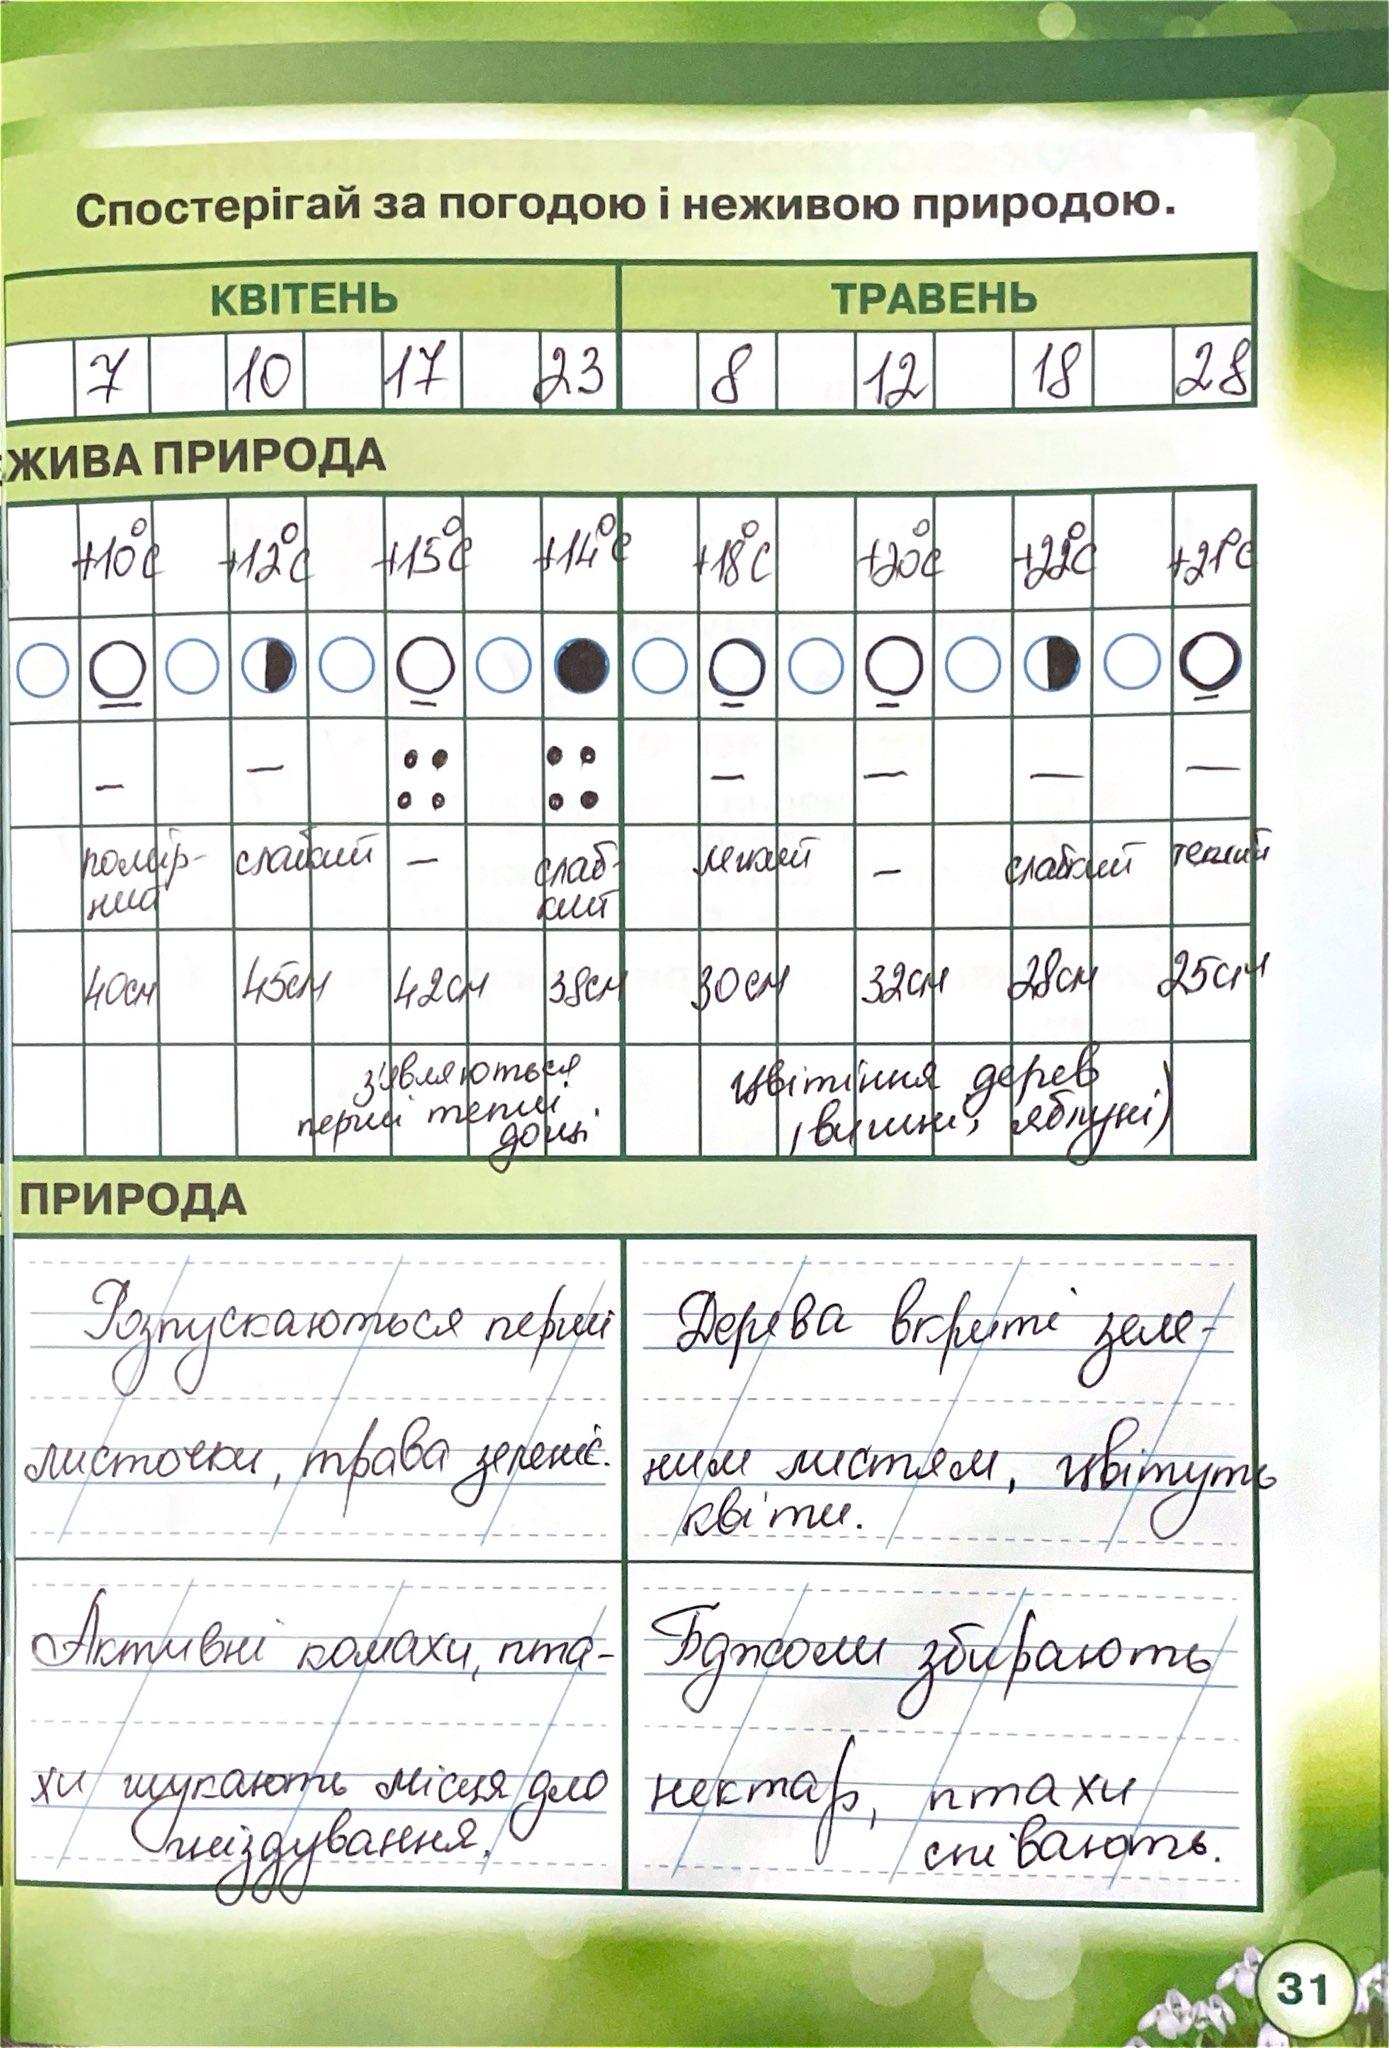 Спостерігай за погодою і неживою природою.
КВІТЕНЬ ТРАВЕНЬ
7 10 17 23 8 12 18 28
ЖИВА ПРИРОДА
+10°С +12°С +15°С +14°С +18°С +20°С +22°С +21°С
— — — — — —
помір- слабкий — слаб- легкий — слабкий теплий
ний кий
40см 45см 42см 38см 30см 32см 28см 25см
з'являються цвітіння дерев
перші теплі (вишні, яблуні)
дощі.
ПРИРОДА
Розпускаються перші
листочки, трава зеленіє.
Дерева вкриті зеле-
ним листям, цвітуть
квіти.
Активні комахи, пта-
хи шукають місця для
гніздування.
Бджоли збирають
нектар, птахи
співають.
31